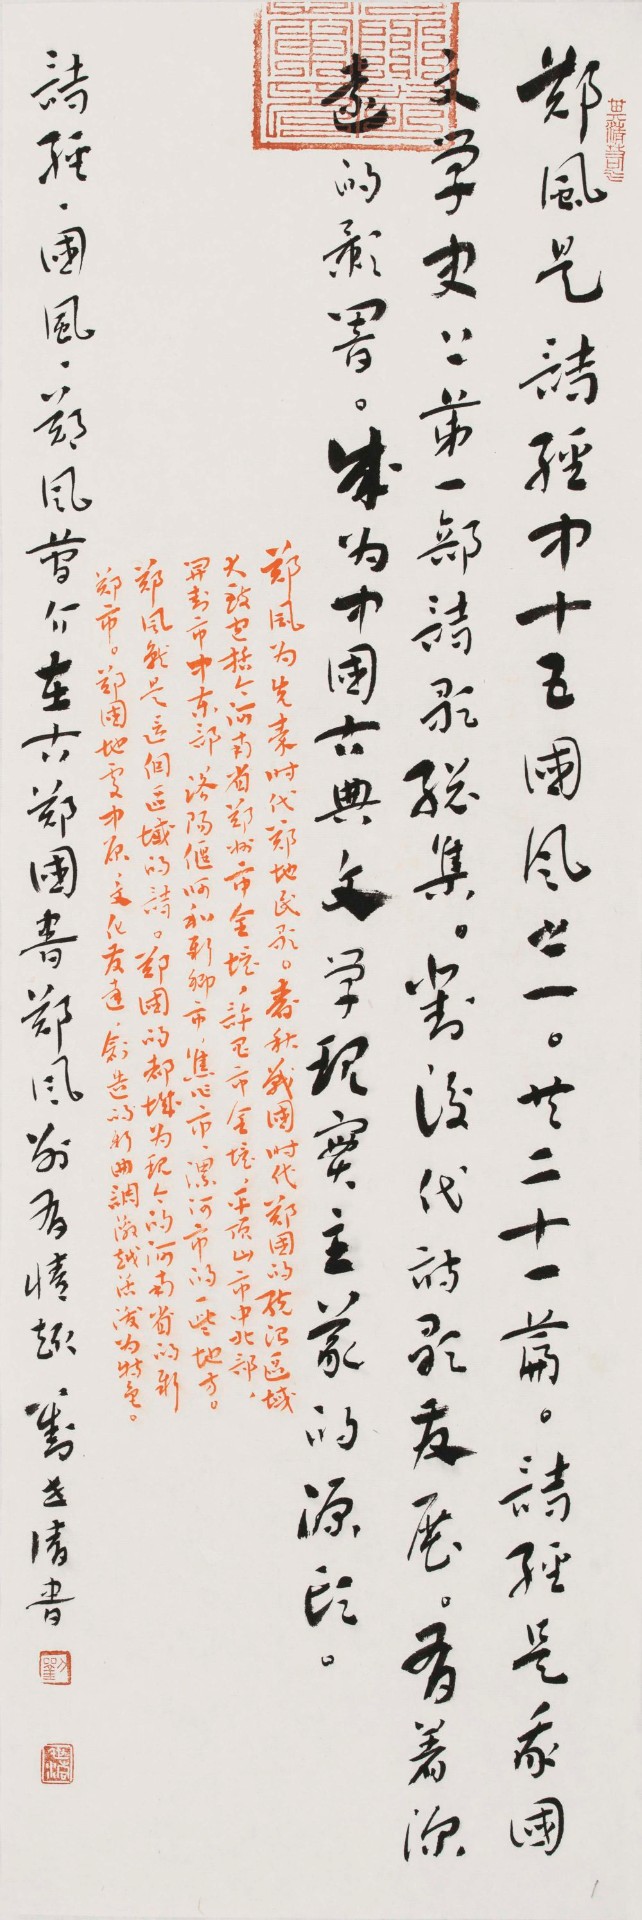 郑風是詩經中十五國风之一。共二十一篇。詩經是我國
文学史上第一部詩歌總集。對後代詩歌发展。有着深
遠的影響。成为中國古典文学現實主義的源頭。
郑风为先秦时代郑地民歌。春秋战國时代郑國的统治区域
大致包括今河南省郑州市全境，許昌市全境，平顶山市中北部，
開封市中东部洛陽偃師和新鄉市，焦作市，漯河市的一些地方。
郑风就是這個區域的詩。郑國的都城为現今的河南省的新
郑市。郑國地處中原，文化发達，創造的新曲調激越活泼为特色。
詩經·國風·郑风簡介在古郑國書郑风别有情趣 劉世清書